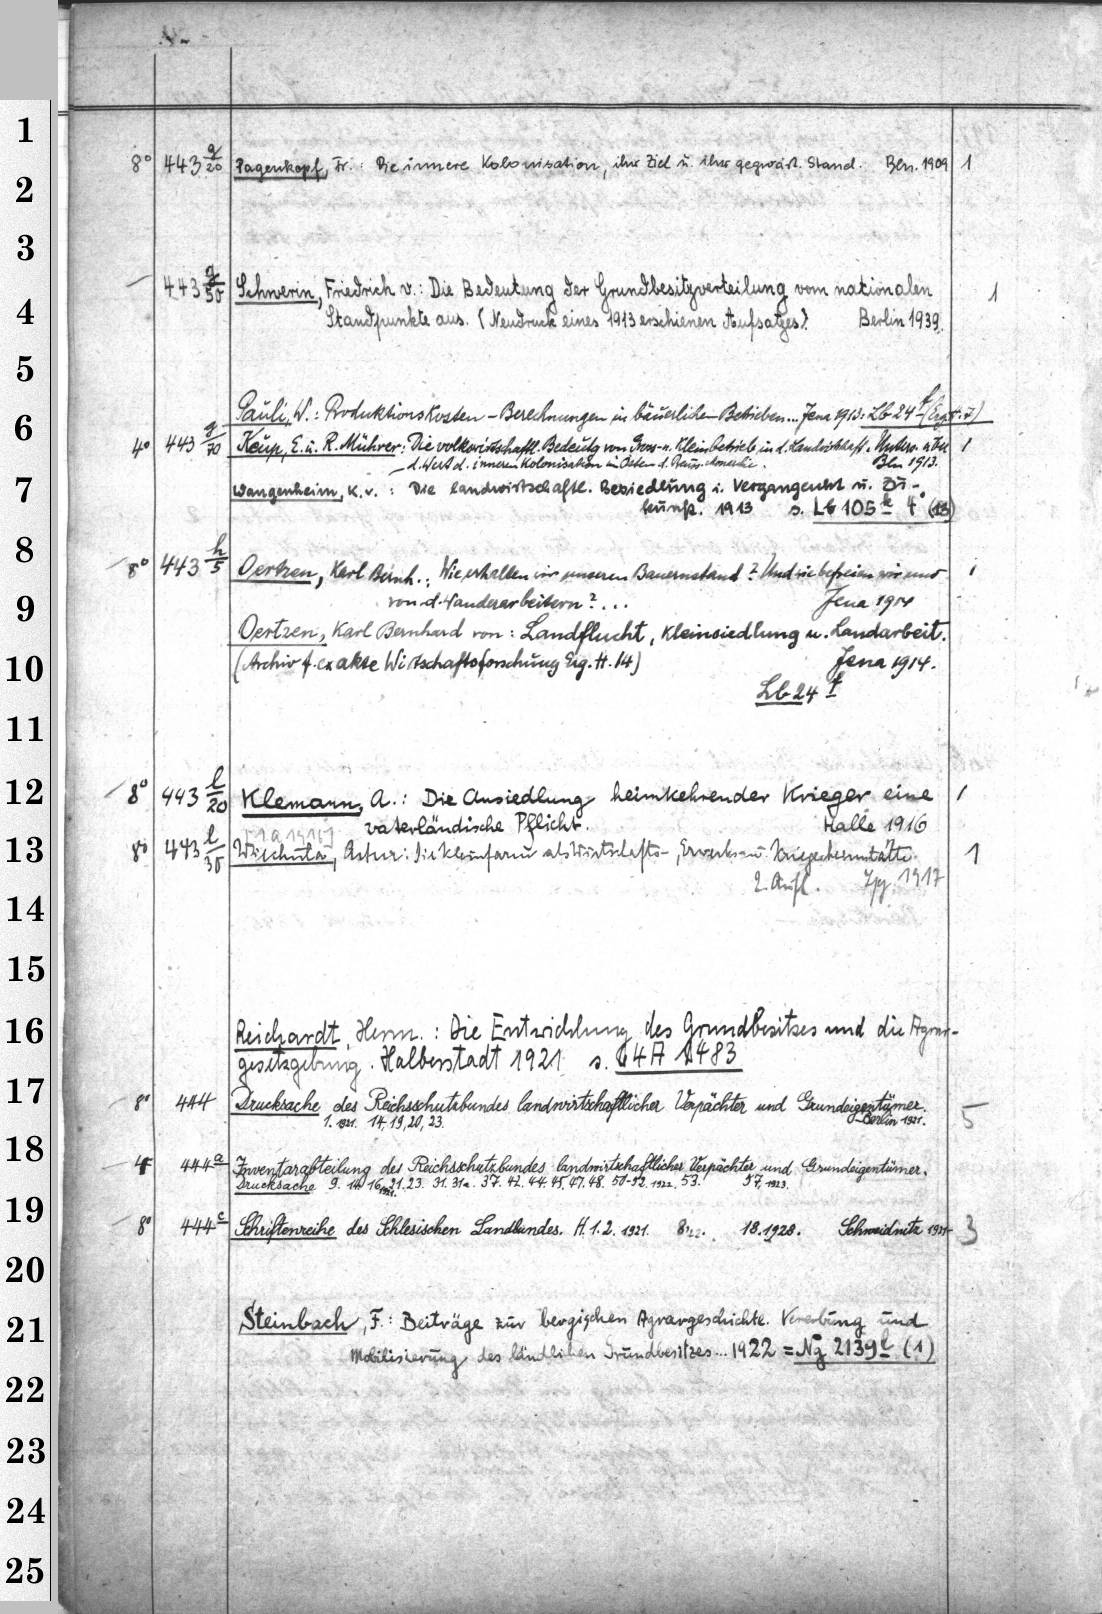 1
8° 443 g/20 Pagenkopf, Fr.: Die innere Kolonisation, ihr Ziel u. ihr gegwärt. Stand. Bln. 1909 1
2
3
443 g/50 Schwerin, Friedrich v.: Die Bedeutung der Grundbesitzverteilung vom nationalen 1
4
Standpunkte aus. (Neudruck eines 1913 erschienen Aufsatzes). Berlin 1939.
5
Pauli, W.: Produktionskosten-Berechnungen in bäuerlichen Betrieben... Jena 1913: Lb 24 f (Erg. H. 7)
6
4° 443 g/70 Keup, E. u. R. Mührer: Die volkswirtschaftl. Bedeutg von Gross- u. Kleinbetrieb in d. Landwirtschaft. 1
d. Wert d. inneren Kolonisation im Osten d. Preuss. Monarchie. Bln 1913.
7
Wangenheim, K. v.: Die landwirtschaftl. Besiedlung i. Vergangenht u. Zu-
kunft. 1913 s. Lb 105 k 4° (13)
8
8° 443 h/5 Oertzen, Karl Bernh.: Wie erhalten wir unseren Bauernstand? Und wie befreien wir uns 1
9
von d. Wanderarbeitern?... Jena 1914
Oertzen, Karl Bernhard von: Landflucht, Kleinsiedlung u. Landarbeit.
10
(Archiv f. exakte Wirtschaftsforschung Erg. H. 14) Jena 1914.
Lb 24 f
11
12
8° 443 l/20 Klemann, A.: Die Ansiedlung heimkehrender Krieger eine 1
vaterländische Pflicht. Halle 1916
13
8° 443 l/30 Wilschula, Artur: Die Kleinfarm als Wirtschafts-, Erwerbs- u. Kriegerheimstätte. 1
2. Aufl. Lpg. 1917
14
15
16
Reichardt, Herm.: Die Entwicklung des Grundbesitzes und die Agrar-
gesetzgebung. Halberstadt 1921 s. 64 A 1483
17
8° 444 Drucksache des Reichsschutzbundes landwirtschaftlicher Verpächter und Grundeigentümer. 5
1. 1921. 14. 19, 20, 23. Berlin 1921.
18
4° 444 a Inventarabteilung des Reichsschutzbundes landwirtschaftlicher Verpächter und Grundeigentümer.
Drucksache 9. 14. 16. 21. 23. 31. 31a. 37. 42. 44. 45. 47. 48. 50-52. 1922. 53. 57. 1923.
19
8° 444 c Schriftenreihe des Schlesischen Landbundes. H. 1. 2. 1921. 8. 22. 18. 1928. Schweidnitz 1921- 3
20
21
Steinbach, F.: Beiträge zur bergischen Agrargeschichte. Vererbung und
Mobilisierung des ländlichen Grundbesitzes... 1922 = Ng 2139 f (1)
22
23
24
25